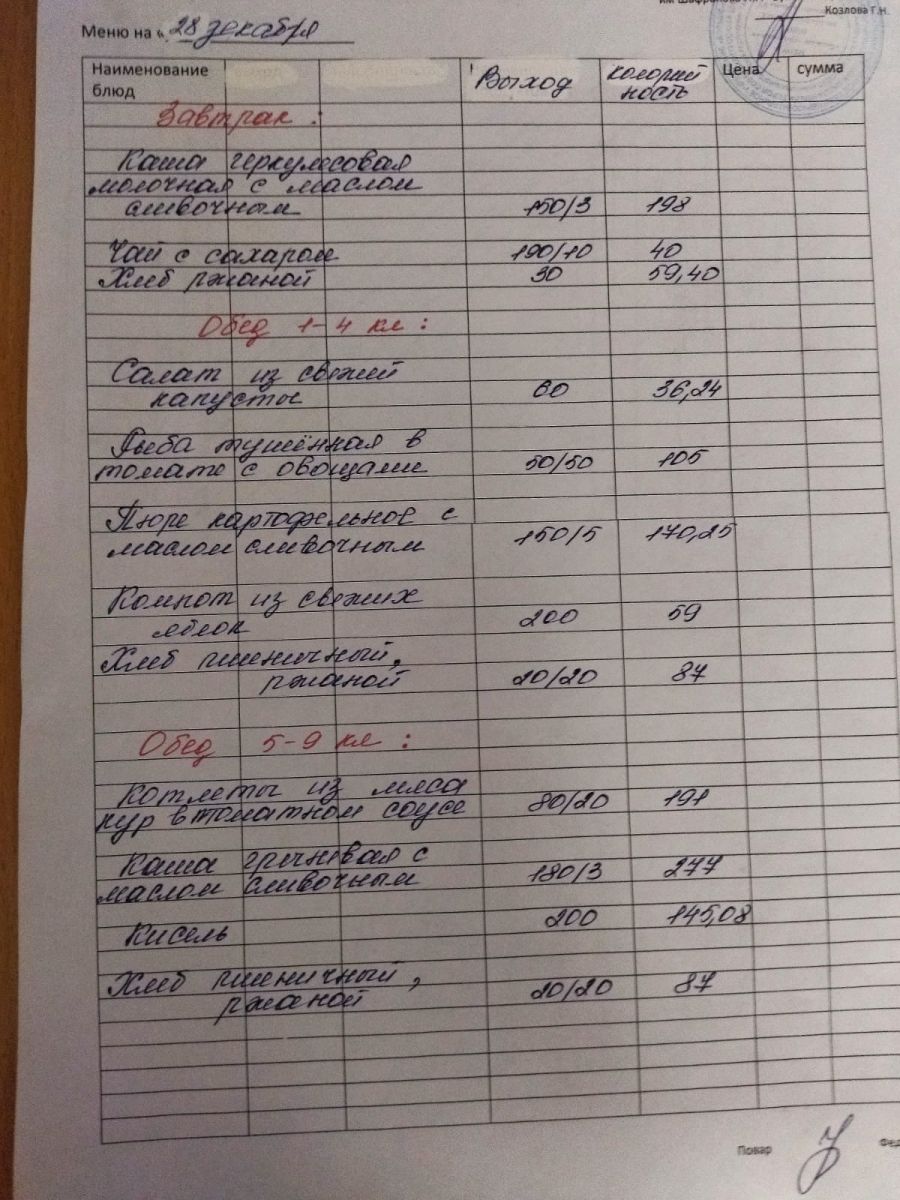 Козлова Г.Н.
Меню на « 28 декабря
Наименование блюд Выход колорий ность Цена сумма
Завтрак :
Каша геркулесовая
молочная с маслом
сливочным 150/3 198
Чай с сахаром 190/10 40
Хлеб ржаной 30 59,40
Обед 1-4 кл :
Салат из свежий
капусты 60 36,24
Рыба тушённая в
томате с овощами 50/50 105
Пюре картофельное с
маслом сливочным 150/5 170,25
Компот из свежих
яблок 200 59
Хлеб пшеничный,
ржаной 20/20 87
Обед 5-9 кл :
Котлеты из мяса
кур в томатном соусе 80/20 191
Каша гречневая с
маслом сливочным 180/3 277
Кисель 200 145,08
Хлеб пшеничный,
ржаной 20/20 87
Повар Фед